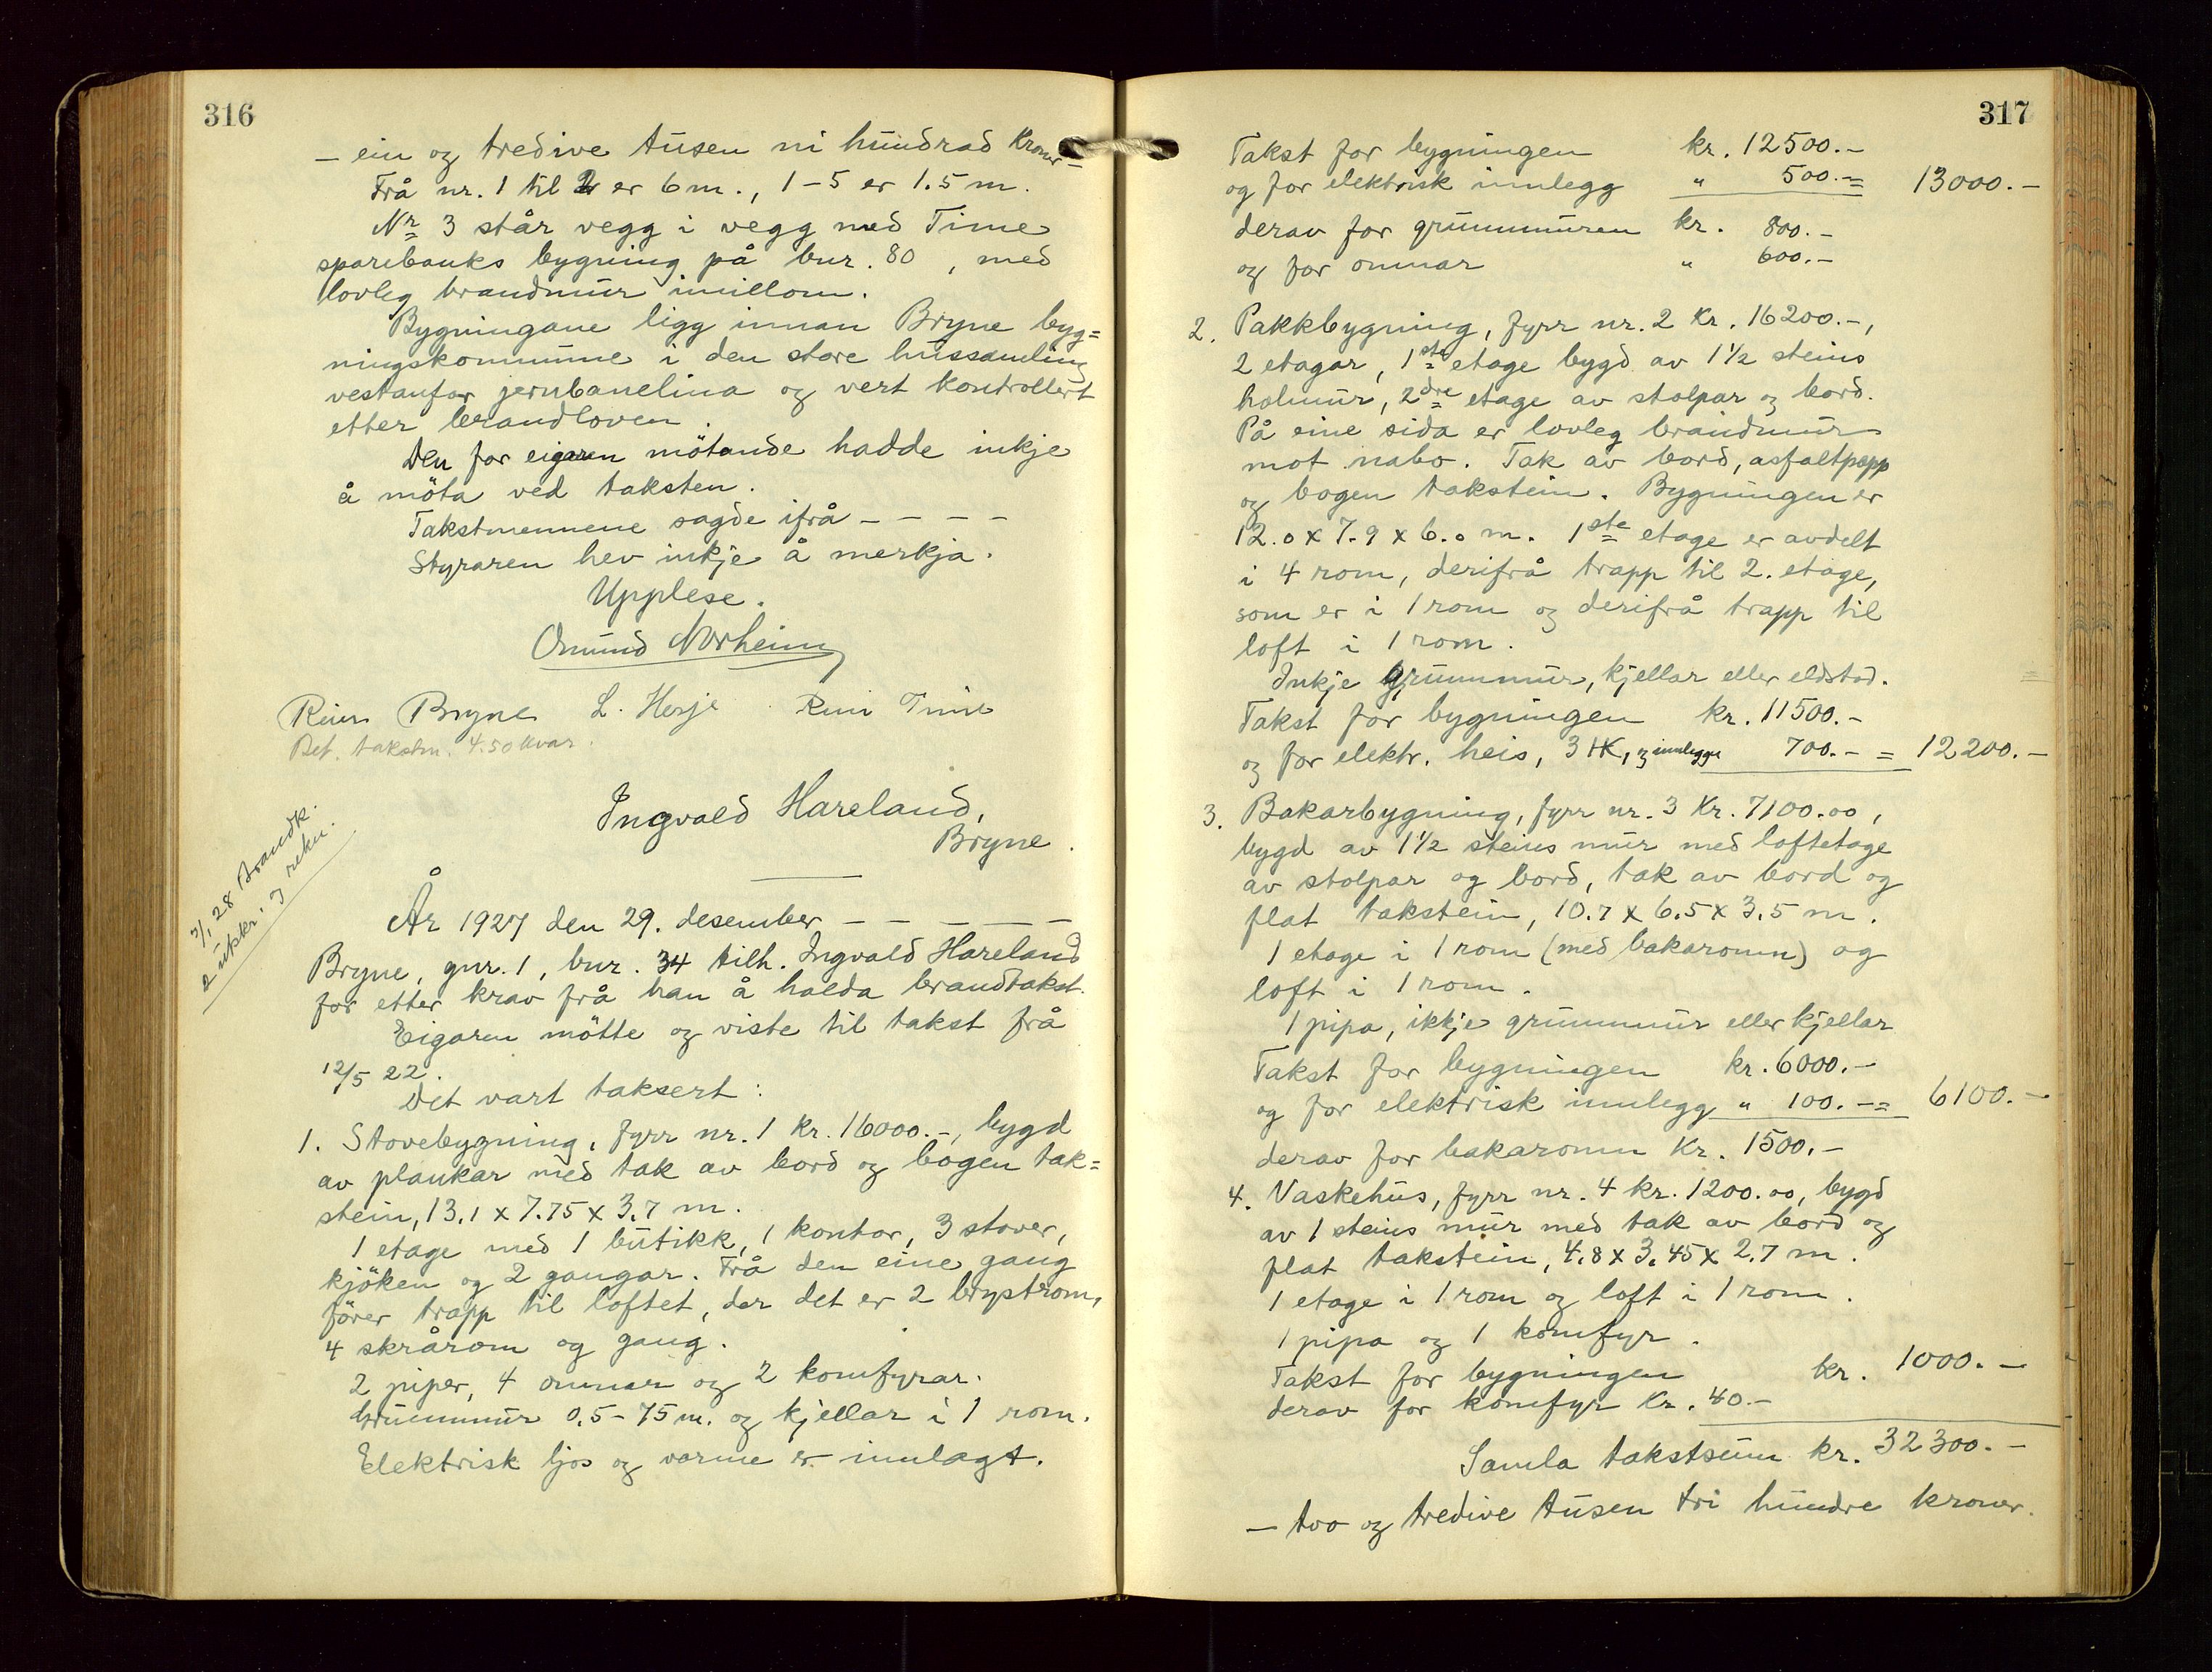 316
— ein og tredive tusen ni hundrad kroner —
Frå nr. 1 til 2 er 6 m., 1 – 5 er 1.5 m.
Nr 3 står vegg i vegg med Time
sparebanks bygning på bnr. 80, med
lovleg brandmur imillom.
Bygningane ligg innan Bryne byg=
ningskommune i den store hussamling
vestanfor jernbanelina og vert kontrollert
etter brandloven.
Den for eigaren mötande hadde inkje
å möta ved taksten.
Takstmennene sagde ifrå – – – –
Styraren hev inkje å merkja.
Upplese.
Omund Norheim
Reier Bryne L. Herje Time
Bet. takstm. 4.50 kvar.
Ingvald Hareland,
Bryne.
3/1 28 brandk.
2 utskr. og rekn.
År 1927 den 29. desember – – – – –
Bryne, gnr. 1, bnr. 34 tilh. Ingvald Hareland
for etter krav frå han å halda brandtakst.
Eigaren mötte og viste til takst frå
12/5 22.
Det vart taksert:
1. Stovebygning, fyrr nr. 1 kr. 16000.–, bygd
av plankar med tak av bord og bogen tak=
stein, 13.1 x 7.75 x 3.7 m.
1 etage med 1 butikk, 1 kontor, 3 stover,
kjöken og 2 gangar. Frå den eine gang
förer trapp til loftet, der det er 2 brystrom,
4 skrårom og gang.
2 piper, 4 omnar og 2 komfyrar.
Grunnmur 0.5 – 75 m. og kjellar i 1 rom.
Elektrisk ljos og varme er innlagt.
317
Takst for bygningen kr. 12500.–
og for elektrisk innlegg " 500.– = 13000.–
derav for grunnmuren kr. 800.–
og for omnar " 600.–
2. Pakkbygning, fyrr nr. 2 Kr. 16200.–,
2 etagar, 1ste etage bygd av 1½ steins
holmur, 2dre etage av stolpar og bord.
På eine sida er lovleg brandmur
mot nabo. Tak av bord, asfaltpapp
og bogen takstein. Bygningen er
12.0 x 7.9 x 6.0 m. 1ste etage er avdelt
i 4 rom, derifrå trapp til 2. etage,
som er i 1 rom og derifrå trapp til
loft i 1 rom.
Inkje grunnmur, kjellar eller eldstad.
Takst for bygningen kr. 11500.–
og for elektr. heis, 3 HK, og innlegg 700.– = 12200.–
3. Bakarbygning, fyrr nr. 3 Kr. 7100.00,
bygd av 1½ steins mur med loftetage
av stolpar og bord, tak av bord og
flat takstein, 10.7 x 6.5 x 3.5 m.
1 etage i 1 rom (med bakaromn) og
loft i 1 rom.
1 pipa, ikkje grunnmur eller kjellar
Takst for bygningen kr. 6000.–
og for elektrisk innlegg " 100.– = 6100.–
derav for bakaromn Kr. 1500.–
4. Vaskehus, fyrr nr. 4 kr. 1200.00, bygd
av 1 steins mur med tak av bord og
flat takstein, 4.8 x 3.45 x 2.7 m.
1 etage i 1 rom og loft i 1 rom.
1 pipa og 1 komfyr.
Takst for bygningen kr. 1000.–
derav for komfyr Kr. 40.–
Samla takstsum kr. 32300.–
— two og tredive tusen tri hundre kroner.